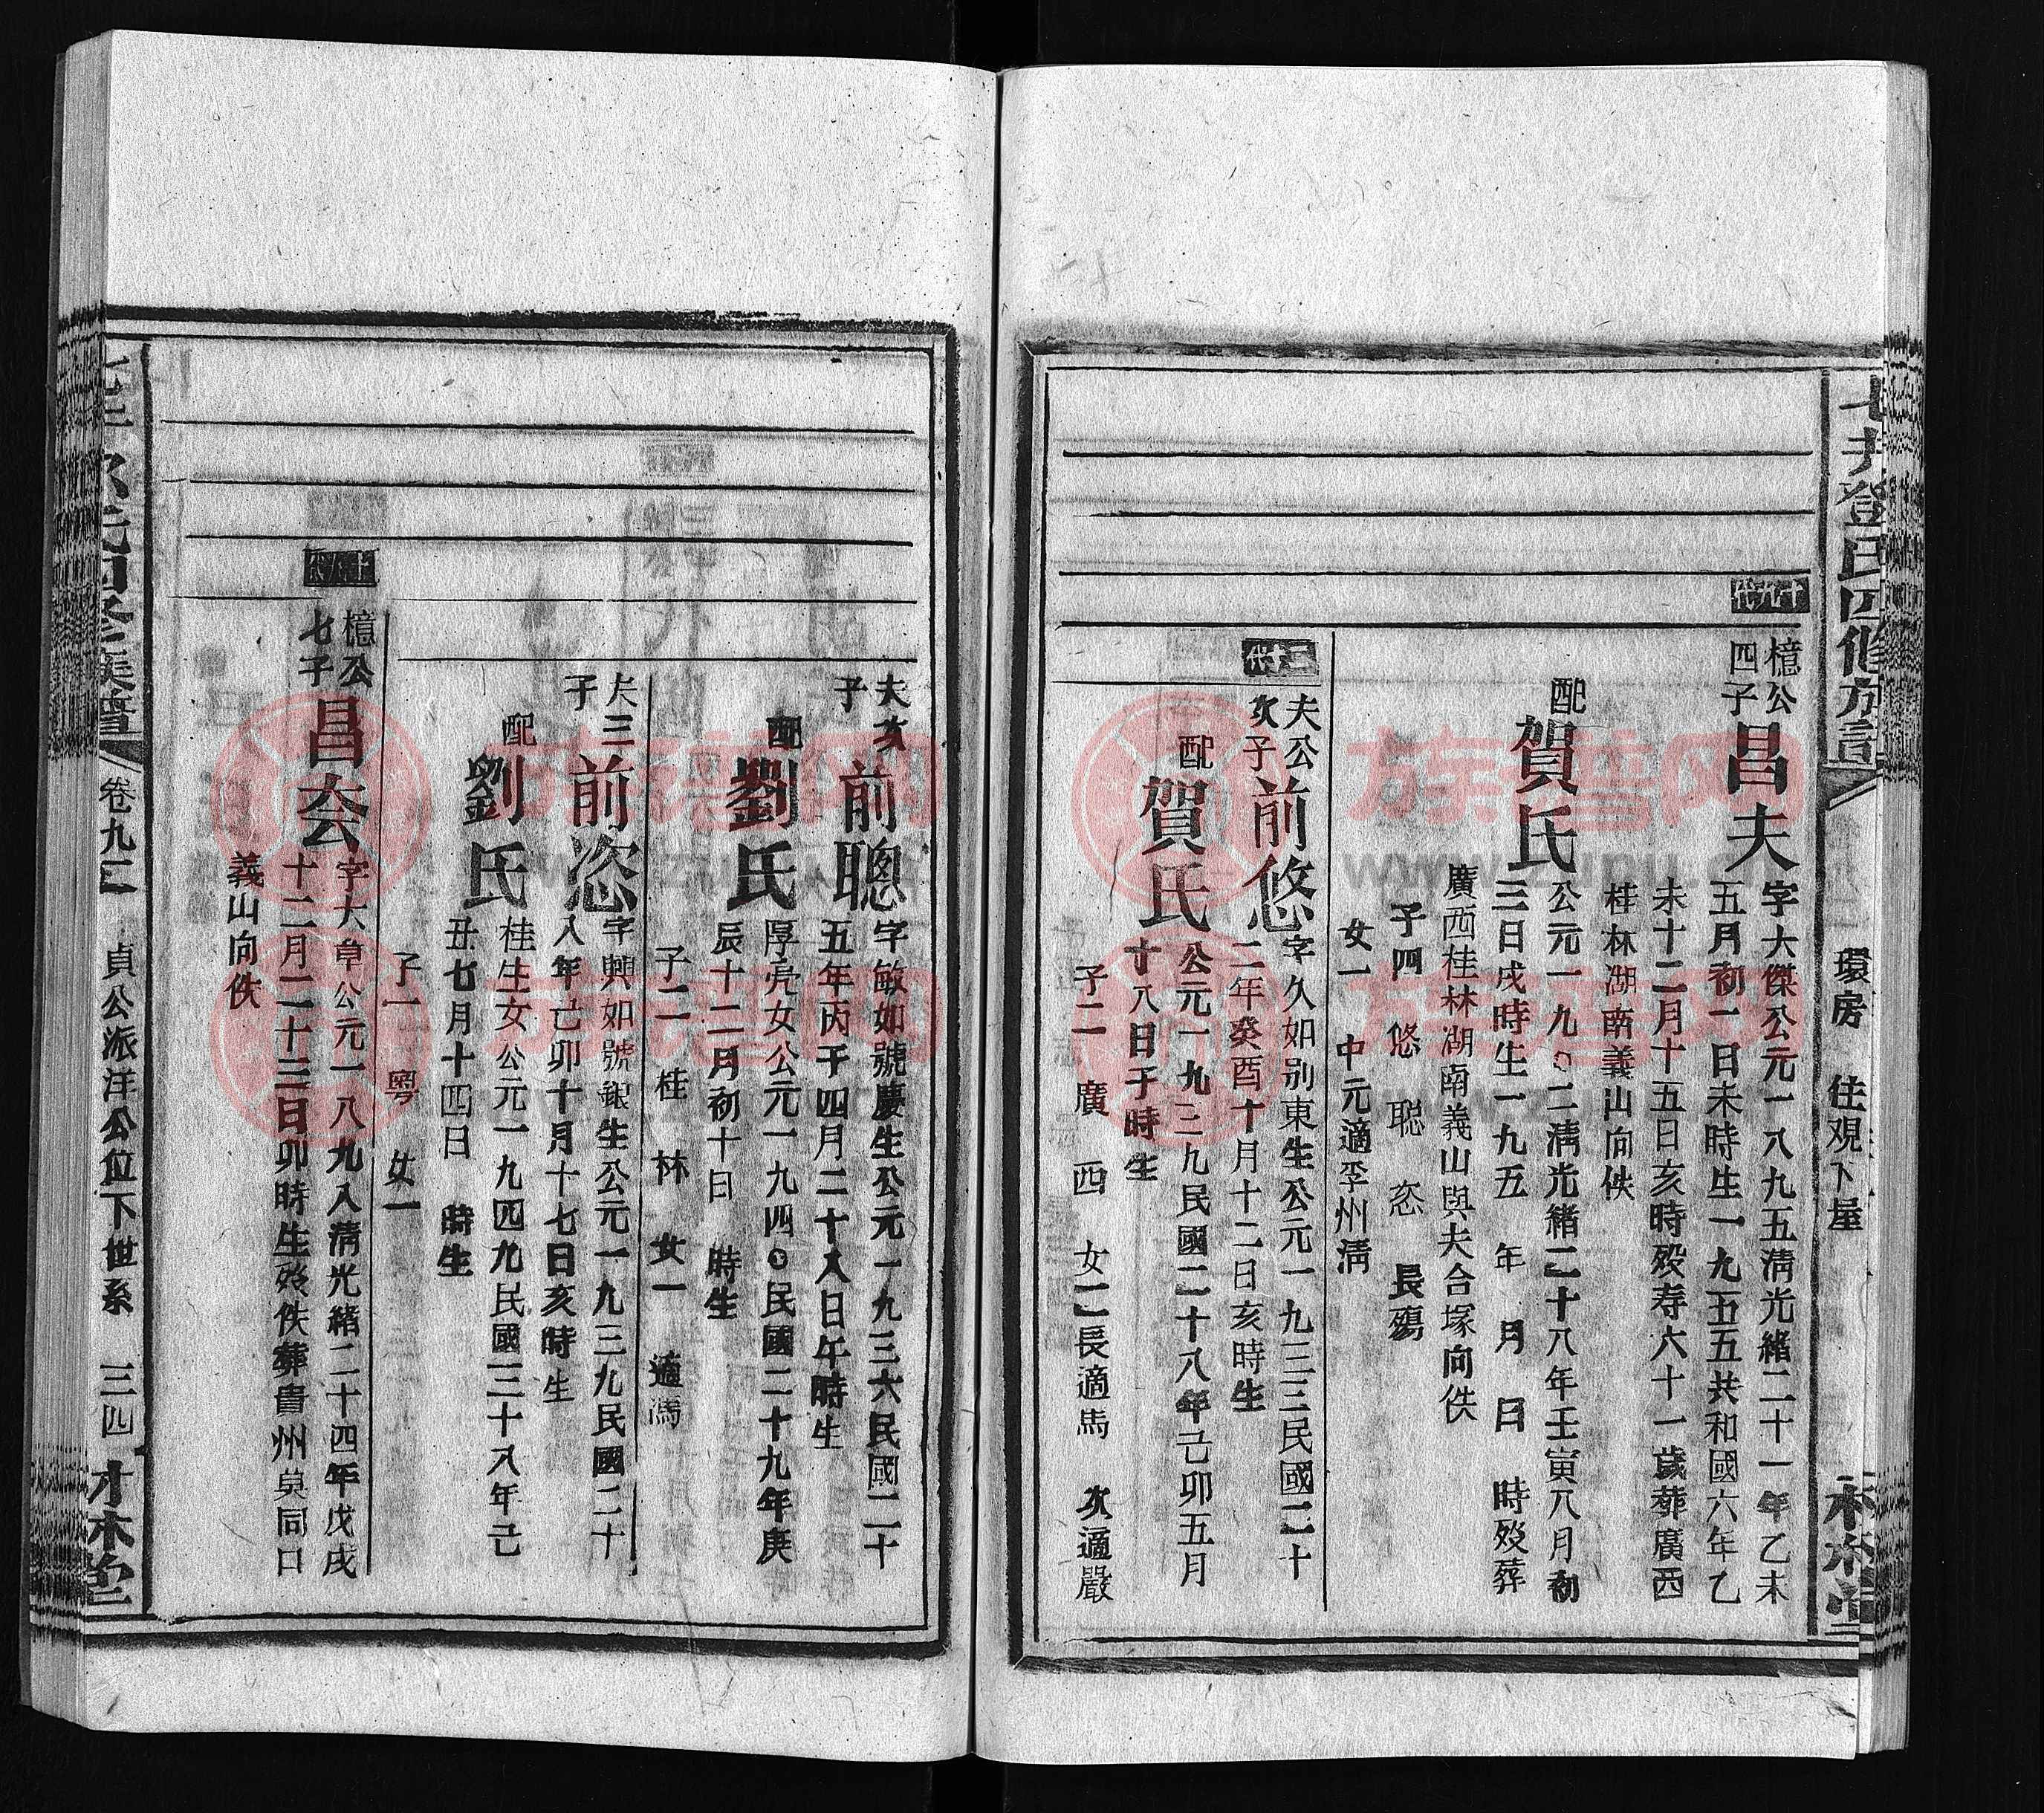 氏四修族
環房 住觀下屋
木堂
十九代
檍公四子
昌夫
字大傑公元一八九五清光緒二十一年乙未
五月初一日未時生一九五五共和國六年乙
未十二月十五日亥時歿寿六十一歲葬廣西
桂林湖南義山向佚
配
賀氏
公元一九〇二清光緒二十八年壬寅八月初
三日戌時生一九五 年 月 日 時歿葬
廣西桂林湖南義山與夫合塚向佚
子四 悠 聪 恣 長殤
女一 中元適李州清
二十代
夫公次子
前悠
字久如别東生公元一九三三民國二十
二年癸酉十月十二日亥時生
配
賀氏
公元一九三九民國二十八年己卯五月
十八日子時生
子二 廣 西 女二長適馬 次適嚴
夫次子
前聰
字敏如號慶生公元一九三六民國二十
五年丙子四月二十八日午時生
配
劉氏
厚亮女公元一九四〇民國二十九年庚
辰十二月初十日 時生
子二 桂 林 女一 適馮
夫三子
前恣
字興如號銀生公元一九三九民國二十
八年己卯十月十七日亥時生
配
劉氏
桂生女公元一九四九民國三十八年己
丑七月十四日 時生
子一 粵 女一
十九代
檍公七子
昌
字大卓公元一八九八清光緒二十四年戊戌
十二月二十三日卯時生歿佚葬貴州莫同口
義山向佚
氏四修族譜
卷九二
貞公派洋公位下世系 三四
木堂
族譜网